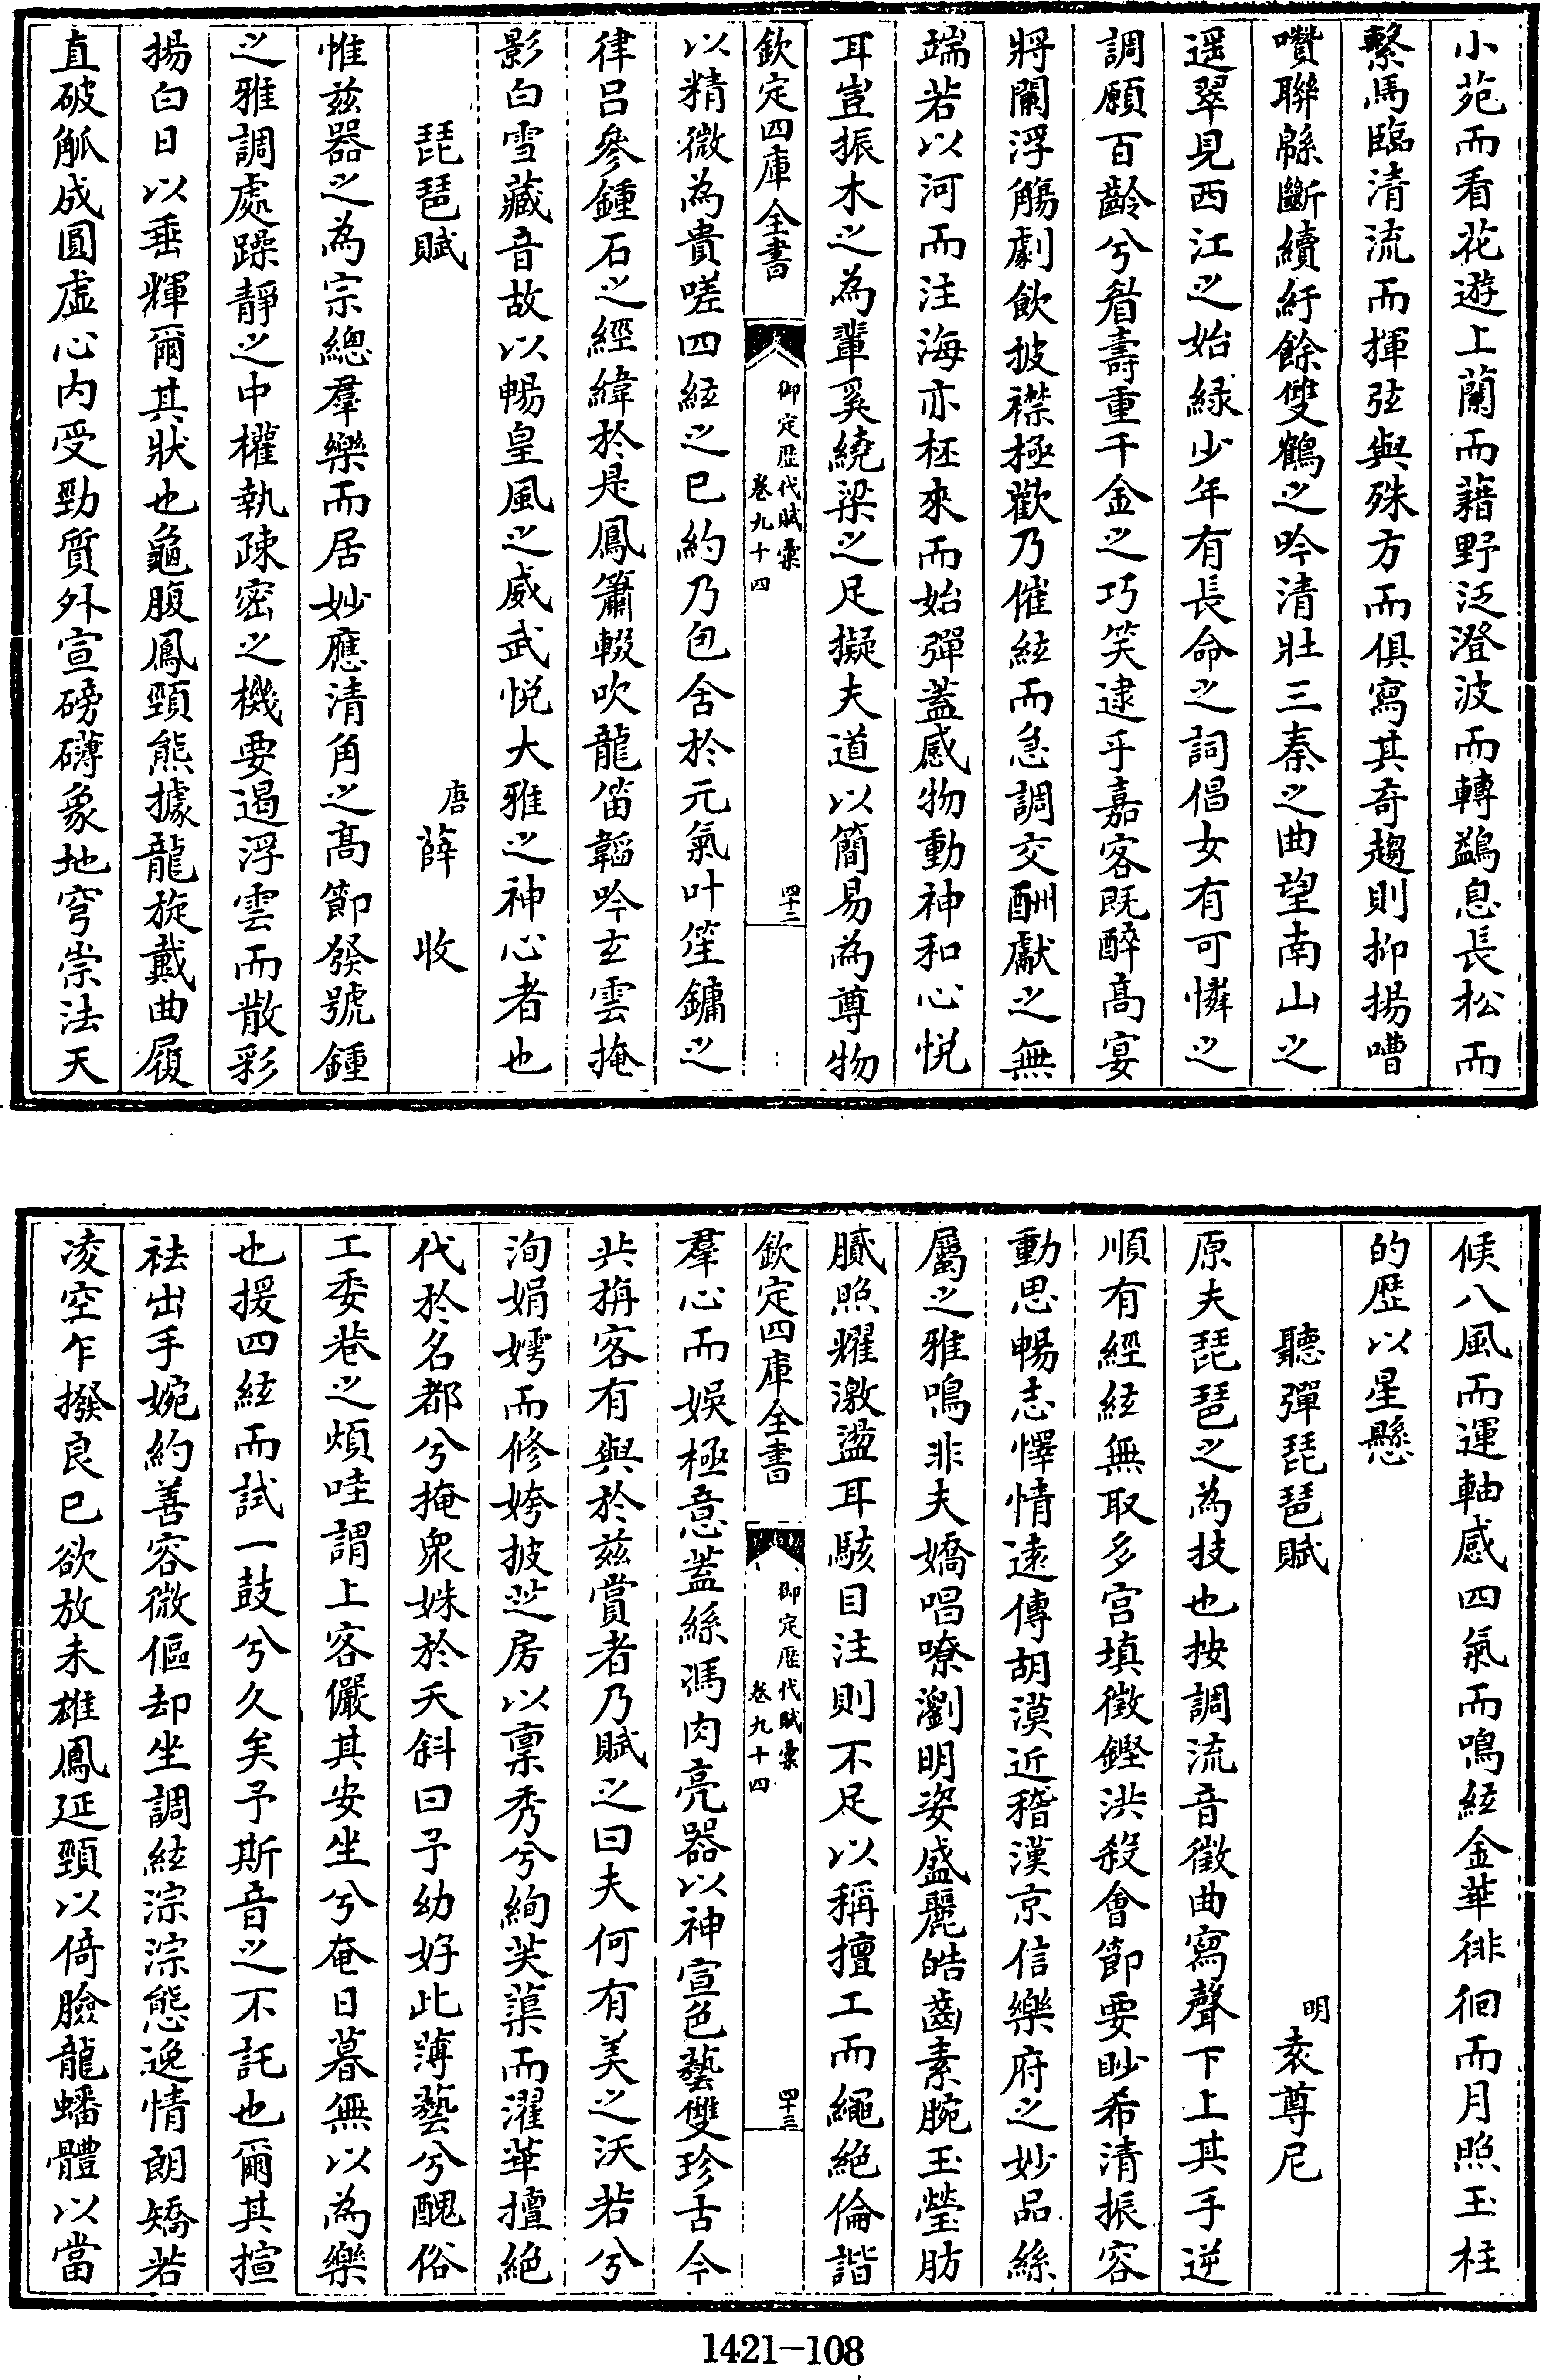 小苑而看花遊上蘭而藉野泛澄波而轉鷁息長松而
繫馬臨清流而揮弦與殊方而俱寫其奇趨則抑揚嘈
囋聯緜斷續紆餘雙鶴之吟清壯三秦之曲望南山之
遥翠見西江之始緑少年有長命之詞倡女有可憐之
調願百齡兮眉壽重千金之巧笑逮乎嘉客既醉高宴
將闌浮觴劇飲披襟極歡乃催絃而急調交酬獻之無
端若以河而注海亦柸來而始彈蓋感物動神和心悦
耳豈振木之為輩奚繞梁之足擬夫道以簡易為尊物
欽定四庫全書
御定歴代賦彙
卷九十四
四十二
以精微為貴嗟四絃之已約乃包舍於元氣叶笙鏞之
律呂參鍾石之經緯於是鳳簫輟吹龍笛韜吟玄雲掩
影白雪藏音故以暢皇風之威武悦大雅之神心者也
琵琶賦
唐薛收
惟兹器之為宗總羣樂而居妙應清角之髙節發號鍾
之雅調處躁靜之中權執疎密之機要遏浮雲而散彩
揚白日以垂輝爾其狀也龜腹鳳頸熊據龍旋戴曲履
直破觚成圓虛心内受勁質外宣磅礴象地穹崇法天
候八風而運軸感四氣而鳴絃金華徘徊而月照玉柱
的歴以星懸
聽彈琵琶賦
明袁尊尼
原夫琵琶之為技也按調流音徵曲寫聲下上其手逆
順有經絃無取多宫填徵鏗洪殺會節要眇希清振容
動思暢志懌情逺傳胡漠近稽漢京信樂府之妙品絲
屬之雅鳴非夫嬌唱嘹瀏明姿盛麗皓齒素腕玉瑩肪
膩照耀激盪耳駭目注則不足以稱擅工而繩絶倫諧
欽定四庫全書
御定歴代賦彙
卷九十四
四十三
羣心而娛極意蓋絲馮肉亮器以神宣色藝雙珍古今
共稱客有與於兹賞者乃賦之曰夫何有美之沃若兮
洵娟嫮而修姱披芷房以禀秀兮絢芙蕖而濯華擅絶
代於名都兮掩衆姝於夭斜曰予幼好此薄藝兮醜俗
工委巷之煩哇謂上客儼其安坐兮奄日暮無以為樂
也援四絃而試一鼓兮久矣予斯音之不託也爾其揎
袪出手婉約善容微傴却坐調絃淙淙態逸情朗矯若
凌空乍撥良已欲放未雄鳳延頸以倚臉龍蟠體以當
1421-108